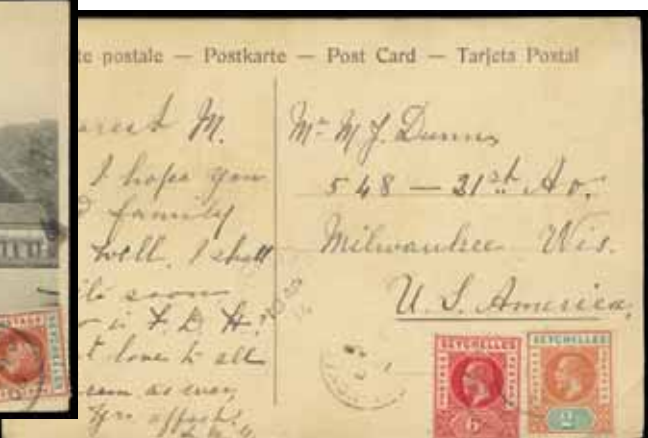 te postale — Postkarte — Post Card — Tarjeta Postal
arest M.
I hope you
family
well. I shall
soon
is F. D. H.?
t love to all
as ever,
Yrs affect.
Mr M J. Dunns
548 — 31st Av.
Milwaukee Wis.
U. S. America,
SEYCHELLES
6
SEYCHELLES
2